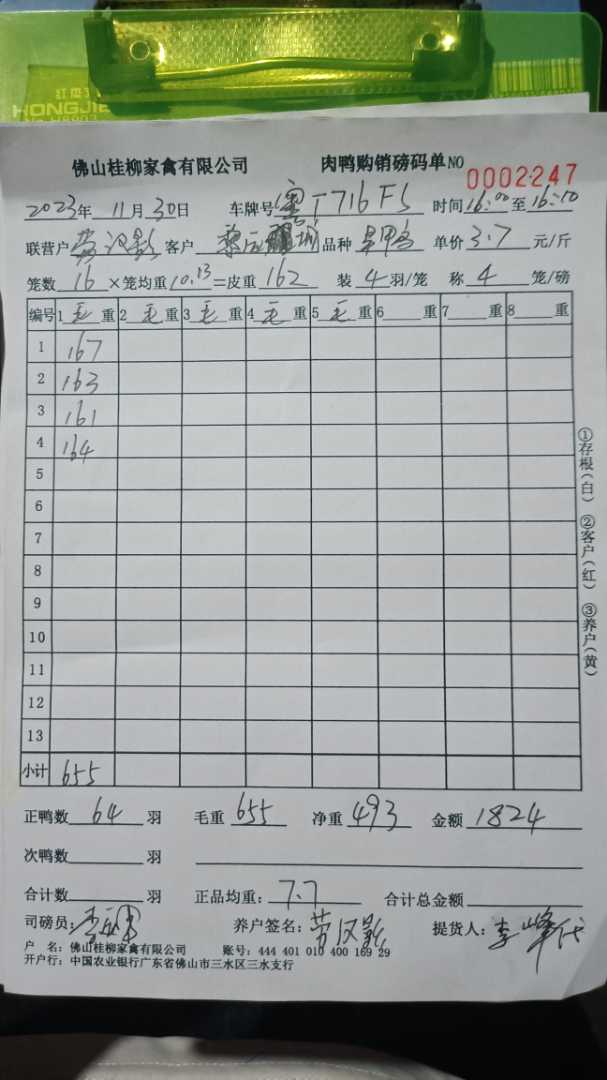 HONGJIE
佛山桂柳家禽有限公司 肉鸭购销磅码单NO 0002247
2023年 11月 30日 车牌号 粤T716F5 时间 16:00 至 16:10
联营户 劳汉影 客户 黎 品种 单价 3.7 元/斤
笼数 16 ×笼均重 10.13 =皮重 162 装 4 羽/笼 称 4 笼/磅
编号 1 毛 重 2 毛 重 3 毛 重 4 毛 重 5 毛 重 6 重 7 重 8 重
1 167
2 163
3 161
4 164
5
6
7
8
9
10
11
12
13
小计 655
①存根(白) ②客户(红) ③养户(黄)
正鸭数 64 羽 毛重 655 净重 493 金额 1824
次鸭数 羽
合计数 羽 正品均重: 7.7 合计总金额
司磅员: 养户签名: 劳汉影 提货人: 李峰代
户 名: 佛山桂柳家禽有限公司 账号: 444 401 010 400 169 29
开户行: 中国农业银行广东省佛山市三水区三水支行